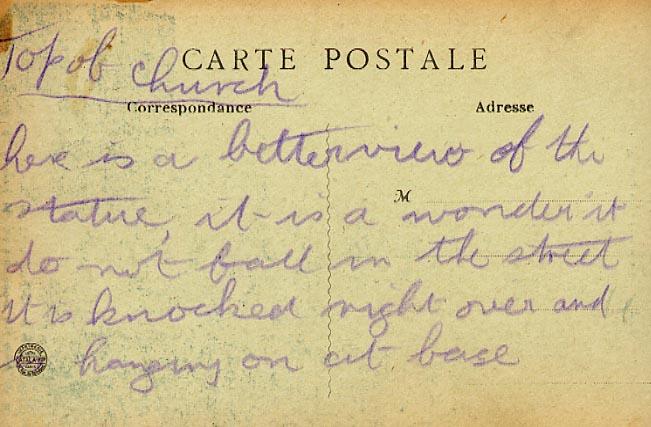 CARTE POSTALE
Top of church
Correspondance
Adresse
here is a better view of the
M
statue, it is a wonder it
do not fall in the street
it is knocked right over and
hanging on at base